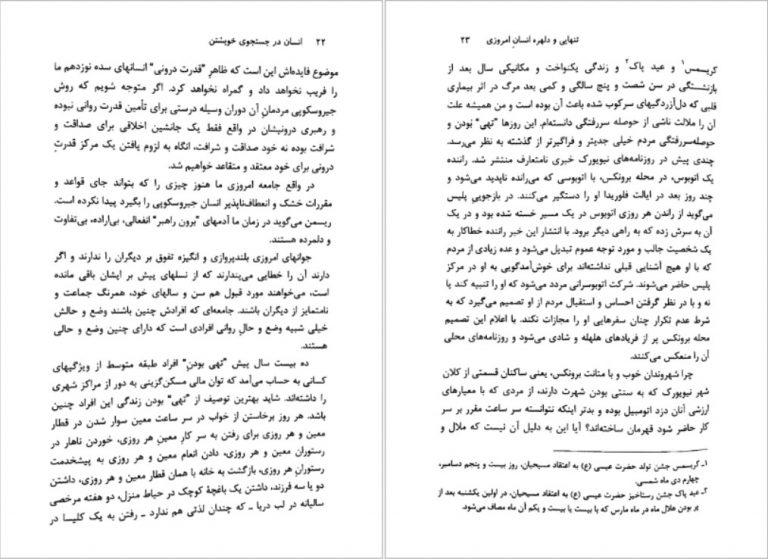 ۲۲ انسان در جستجوی خویشتن
موضوع فایده‌اش این است که ظاهر "قدرت درونی" انسانهای سده نوزدهم ما
را فریب نخواهد داد و گمراه نخواهد کرد. اگر متوجه شویم که روش
جیروسکوپی مردمان آن دوران وسیله درستی برای تأمین قدرت روانی نبوده
و رهبری درونیشان در واقع فقط یک جانشین اخلاقی برای صداقت و
شرافت بوده نه خود صداقت و شرافت، آنگاه به لزوم یافتن یک مرکز قدرتِ
درونی برای خود معتقد و متقاعد خواهیم شد.
در واقع جامعه امروزی ما هنوز چیزی را که بتواند جای قواعد و
مقررات خشک و انعطاف‌ناپذیر انسان جیروسکوپی را بگیرد پیدا نکرده است.
ریسمن می‌گوید در زمان ما آدمهای "برون راهبر" انفعالی، بی‌اراده، بی‌تفاوت
و دلمرده هستند.
جوانهای امروزی بلندپروازی و انگیزه تفوق بر دیگران را ندارند و اگر
دارند آن را خطایی می‌پندارند که از نسلهای پیش بر ایشان باقی مانده
است، می‌خواهند مورد قبول هم سن و سالهای خود، همرنگ جماعت و
نامتمایز از دیگران باشند. جامعه‌ای که افرادش چنین باشند وضع و حالش
خیلی شبیه وضع و حالِ روانی افرادی است که دارای چنین وضع و حالی
هستند.
ده بیست سال پیش "تهی بودنِ" افراد طبقه متوسط از ویژگیهای
کسانی به حساب می‌آمد که توان مالی مسکن‌گزینی به دور از مراکز شهری
را داشته‌اند. شاید بهترین توصیف از "تهی" بودن زندگی این افراد چنین
باشد. هر روز برخاستن از خواب در سر ساعت معین سوار شدن در قطار
معین و هر روزی برای رفتن به سر کار معین هر روزی، خوردن ناهار در
رستوران معین هر روزی، دادن انعام معین و هر روزی به پیشخدمت
رستورانِ هر روزی، بازگشت به خانه با همان قطار معین و هر روزی، داشتن
دو یا سه فرزند، داشتن یک باغچهٔ کوچک در حیاط منزل، دو هفته مرخصی
سالیانه در لب دریا ـ که چندان لذتی هم ندارد ـ رفتن به یک کلیسا در
تنهایی و دلهره انسان امروزی ۲۳
کریسمس۱ و عید پاک۲ و زندگی یکنواخت و مکانیکی سال بعد از
بازنشستگی در سن شصت و پنج سالگی و کمی بعد مرگ در اثر بیماری
قلبی که دل‌آزردگیهای سرکوب شده باعث آن بوده است و من همیشه علت
آن را ملالت ناشی از حوصله سررفتگی دانسته‌ام. این روزها "تهی" بودن و
حوصله‌سررفتگی مردم خیلی جدیتر و فراگیرتر از گذشته به نظر می‌رسد.
چندی پیش در روزنامه‌های نیویورک خبری نامتعارف منتشر شد. راننده
یک اتوبوس، در محله برونکس، با اتوبوسی که می‌رانده ناپدید می‌شود و
چند روز بعد در ایالت فلوریدا او را دستگیر می‌کنند. در بازجویی پلیس
می‌گوید از راندن هر روزی اتوبوس در یک مسیر خسته شده بود و در یک
آن به سرش زده که به راهی دیگر برود. با انتشار این خبر راننده خطاکار به
یک شخصیت جالب و مورد توجه عموم تبدیل می‌شود و عده زیادی از مردم
که با او هیچ آشنایی قبلی نداشته‌اند برای خوش‌آمدگویی به او در مرکز
پلیس حاضر می‌شوند. شرکت اتوبوسرانی مردد می‌شود که او را تنبیه کند یا
نه و با در نظر گرفتن احساس و استقبال مردم از او تصمیم می‌گیرد که به
شرط عدم تکرار چنان سفرهایی او را مجازات نکند. با اعلام این تصمیم
محله برونکس پر از فریادهای هلهله و شادی می‌شود و روزنامه‌های محلی
آن را منعکس می‌کنند.
چرا شهروندان خوب و با متانت برونکس، یعنی ساکنان قسمتی از کلان
شهر نیویورک که به سنتی بودن شهرت دارند، از مردی که با معیارهای
ارزشی آنان دزد اتومبیل بوده و بدتر اینکه نتوانسته سر ساعت مقرر بر سر
کار حاضر شود قهرمان ساخته‌اند؟ آیا این به دلیل آن نیست که ملال و
۱ـ کریسمس جشن تولد حضرت عیسی (ع) به اعتقاد مسیحیان، روز بیست و پنجم دسامبر،
چهارم دی ماه شمسی.
۲ـ عید پاک جشن رستاخیز حضرت عیسی (ع) به اعتقاد مسیحیان، در اولین یکشنبه بعد از
پر بودن هلال ماه در ماه مارس که با بیست یا بیست و یکم آن ماه مصاف می‌شود.